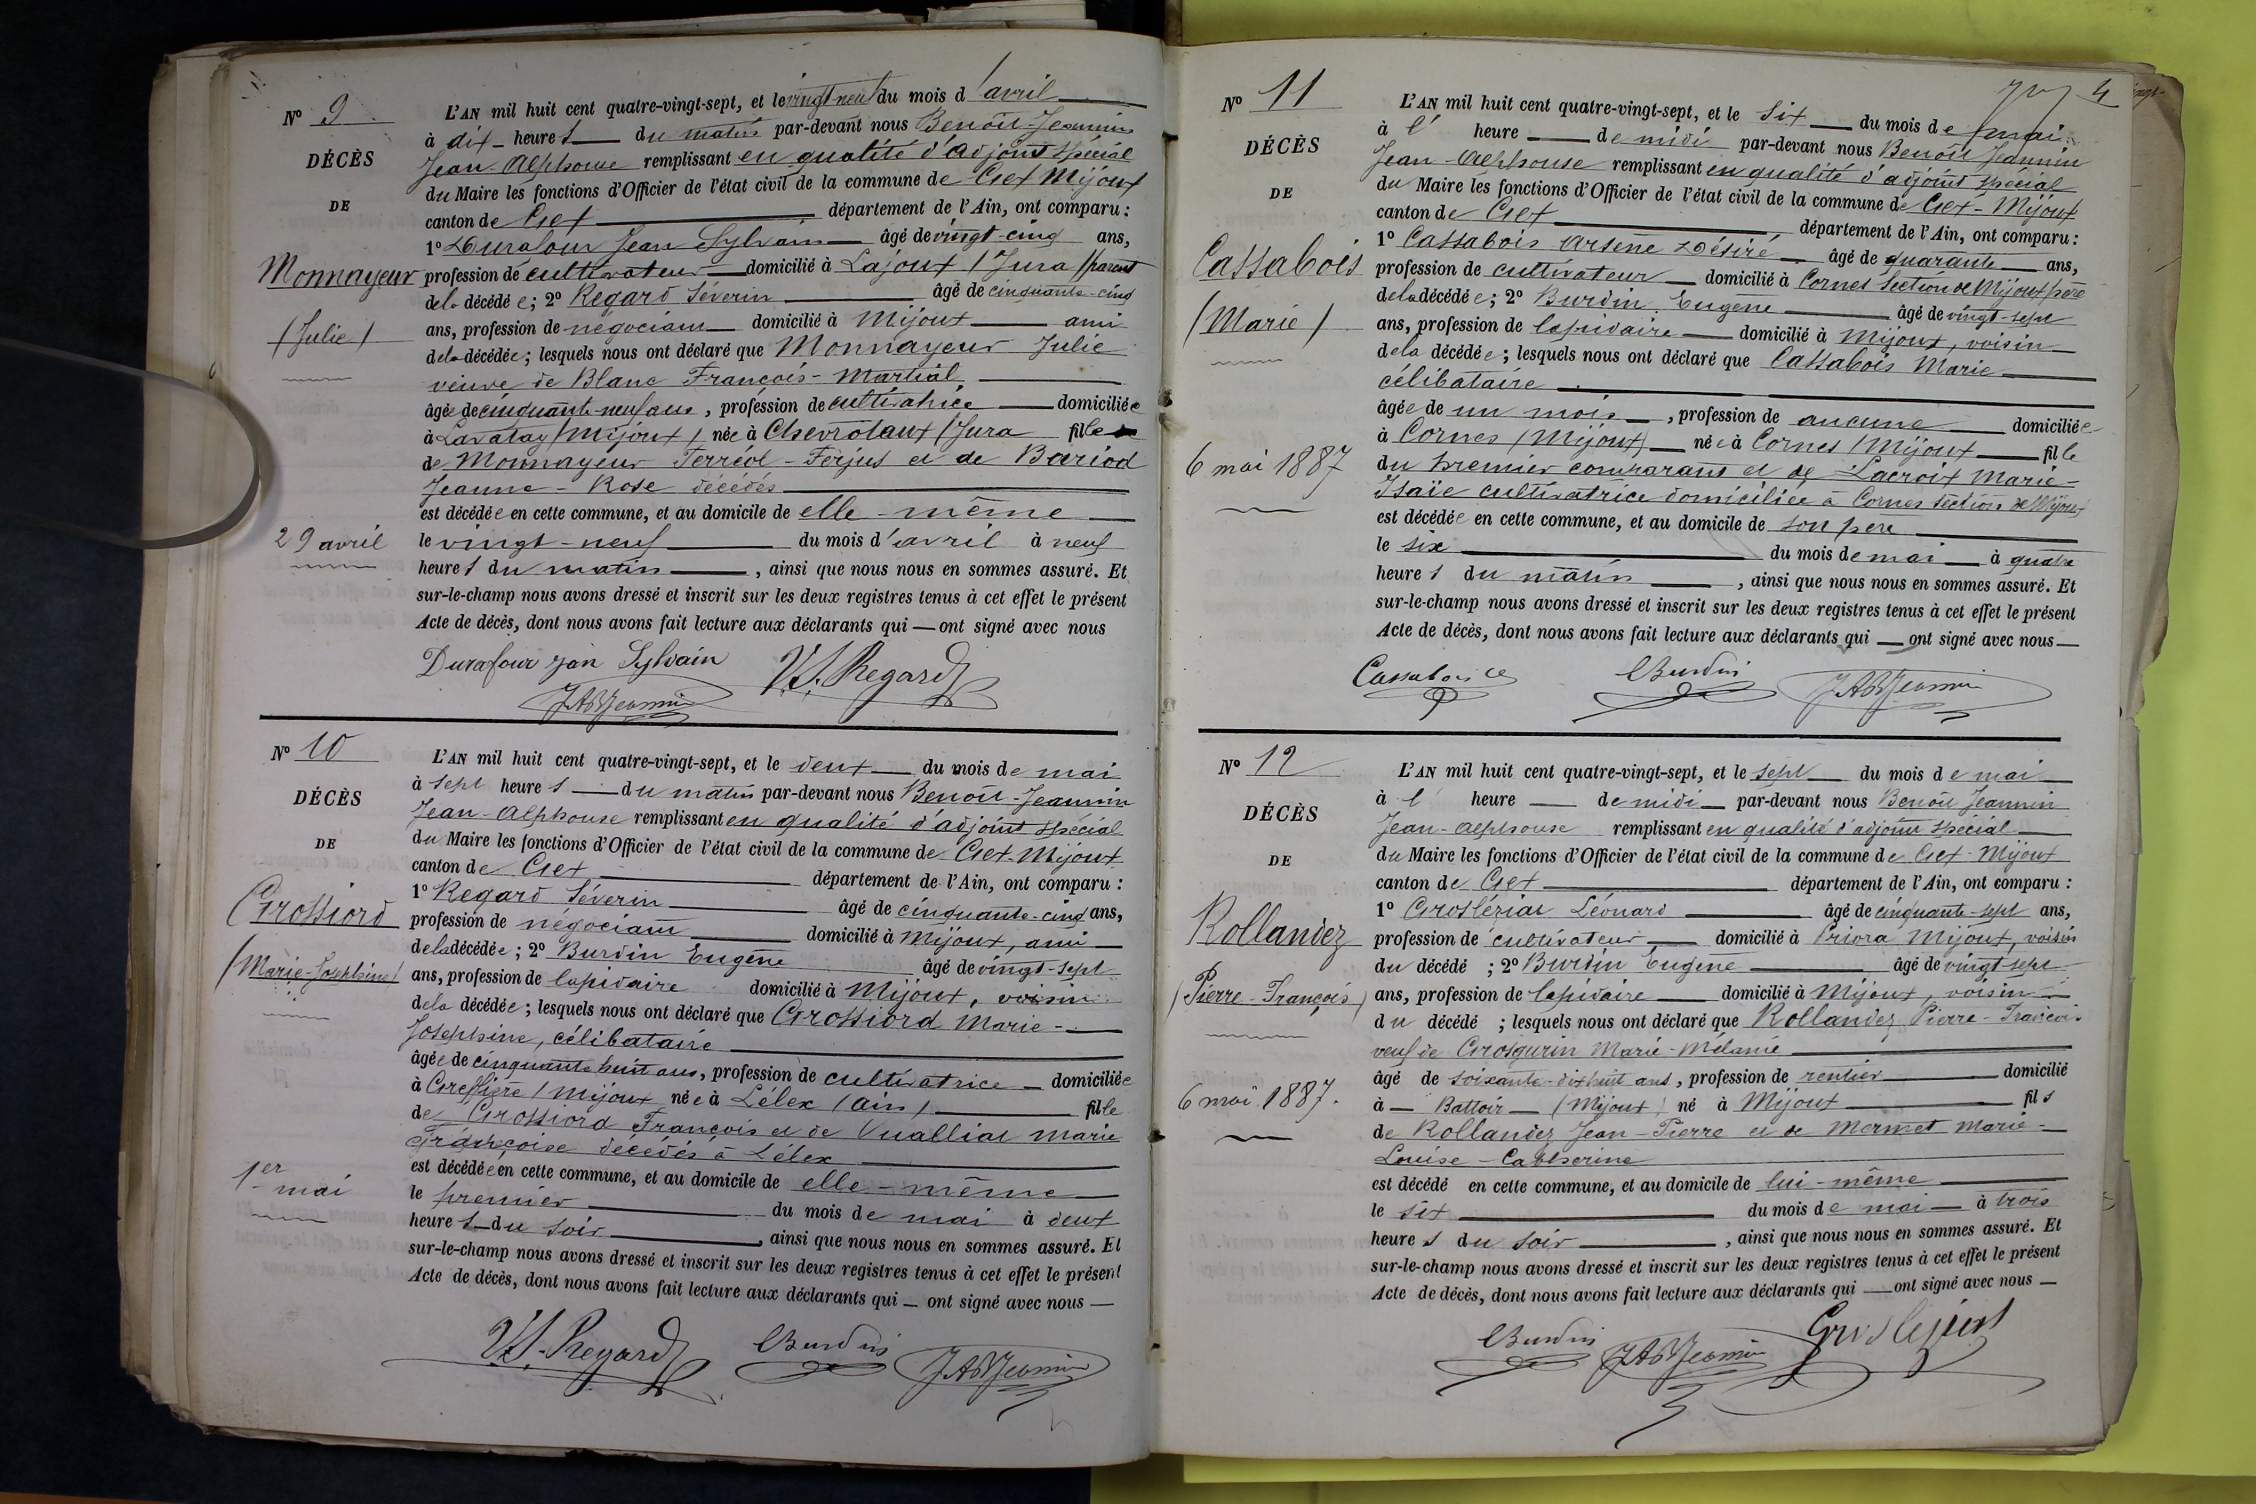 N° 9
DÉCÈS
DE
Monnayeur
(Julie)
29 avril
L'AN mil huit cent quatre-vingt-sept, et le vingt neuf du mois d'avril
à dix heures du matin par-devant nous Benoît-Jeannin
Jean-Alphonse remplissant en qualité d'adjoint spécial
du Maire les fonctions d'Officier de l'état civil de la commune de Gex Mijoux
canton de Gex département de l'Ain, ont comparu :
1° Durafour Jean Sylvain âgé de vingt-cinq ans,
profession de cultivateur domicilié à Lajoux (Jura) parent
de la décédée ; 2° Regard Séverin âgé de cinquante-cinq
ans, profession de négociant domicilié à Mijoux ami
de la décédée ; lesquels nous ont déclaré que Monnayeur Julie
veuve de Blanc François-Martial
âgée de cinquante-neuf ans, profession de cultivatrice domiciliée
à Lavatay (Mijoux) née à Chevrotaux (Jura fille
de Monnayeur Ferréol-Ferjus et de Bariod
Jeanne-Rose décédés
est décédée en cette commune, et au domicile de elle-même
le vingt-neuf du mois d'avril à neuf
heures du matin, ainsi que nous nous en sommes assuré. Et
sur-le-champ nous avons dressé et inscrit sur les deux registres tenus à cet effet le présent
Acte de décès, dont nous avons fait lecture aux déclarants qui — ont signé avec nous
Durafour jan Sylvain V.S. Regard
JABJeannin
N° 10
DÉCÈS
DE
Grossiord
(Marie-Josephine)
1er mai
L'AN mil huit cent quatre-vingt-sept, et le deux du mois de mai
à sept heures du matin par-devant nous Benoît-Jeannin
Jean-Alphonse remplissant en qualité d'adjoint spécial
du Maire les fonctions d'Officier de l'état civil de la commune de Gex-Mijoux
canton de Gex département de l'Ain, ont comparu :
1° Regard Séverin âgé de cinquante-cinq ans,
profession de négociant domicilié à Mijoux, ami
de la décédée ; 2° Burdin Eugène âgé de vingt-sept
ans, profession de lapidaire domicilié à Mijoux, voisin
de la décédée ; lesquels nous ont déclaré que Grossiord Marie-
Josephine, célibataire
âgée de cinquante huit ans, profession de cultivatrice domiciliée
à Greffière (Mijoux née à Lélex (Ain) fille
de Grossiord François et de Vualliat Marie
Françoise décédés à Lélex
est décédée en cette commune, et au domicile de elle-même
le premier du mois de mai à deux
heures du soir, ainsi que nous nous en sommes assuré. Et
sur-le-champ nous avons dressé et inscrit sur les deux registres tenus à cet effet le présent
Acte de décès, dont nous avons fait lecture aux déclarants qui — ont signé avec nous —
V.S. Regard EBurdin JABJeannin
4
N° 11
DÉCÈS
DE
Cassabois
(Marie)
6 mai 1887
L'AN mil huit cent quatre-vingt-sept, et le six du mois de mai
à l' heure de midi par-devant nous Benoît Jeannin
Jean-Alphonse remplissant en qualité d'adjoint spécial
du Maire les fonctions d'Officier de l'état civil de la commune de Gex-Mijoux
canton de Gex département de l'Ain, ont comparu :
1° Cassabois Arsène Désiré âgé de quarante ans,
profession de cultivateur domicilié à Cornes section de Mijoux père
de la décédée ; 2° Burdin Eugène âgé de vingt-sept
ans, profession de lapidaire domicilié à Mijoux, voisin
de la décédée ; lesquels nous ont déclaré que Cassabois Marie
célibataire
âgée de un mois, profession de aucune domiciliée
à Cornes (Mijoux) née à Cornes (Mijoux fille
du premier comparant et de Lacroix Marie-
Isaïe cultivatrice domiciliée à Cornes section de Mijoux
est décédée en cette commune, et au domicile de son père
le six du mois de mai à quatre
heures du matin, ainsi que nous nous en sommes assuré. Et
sur-le-champ nous avons dressé et inscrit sur les deux registres tenus à cet effet le présent
Acte de décès, dont nous avons fait lecture aux déclarants qui — ont signé avec nous —
Cassabois EBurdin JABJeannin
N° 12
DÉCÈS
DE
Rollandez
(Pierre-François)
6 mai 1887.
L'AN mil huit cent quatre-vingt-sept, et le sept du mois de mai
à l' heure de midi par-devant nous Benoît Jeannin
Jean-Alphonse remplissant en qualité d'adjoint spécial
du Maire les fonctions d'Officier de l'état civil de la commune de Gex-Mijoux
canton de Gex département de l'Ain, ont comparu :
1° Grosléziat Léonard âgé de cinquante-sept ans,
profession de cultivateur domicilié à Priora Mijoux, voisin
du décédé ; 2° Burdin Eugène âgé de vingt-sept
ans, profession de lapidaire domicilié à Mijoux, voisin
du décédé ; lesquels nous ont déclaré que Rollandez Pierre-François
veuf de Grosgurin Marie-Mélanie
âgé de soixante-dix huit ans, profession de rentier domicilié
à — Battoir — (Mijoux) né à Mijoux fils
de Rollandez Jean-Pierre et de Mermet Marie-
Louise-Catherine
est décédé en cette commune, et au domicile de lui-même
le six du mois de mai à trois
heures du soir, ainsi que nous nous en sommes assuré. Et
sur-le-champ nous avons dressé et inscrit sur les deux registres tenus à cet effet le présent
Acte de décès, dont nous avons fait lecture aux déclarants qui — ont signé avec nous —
EBurdin JABJeannin